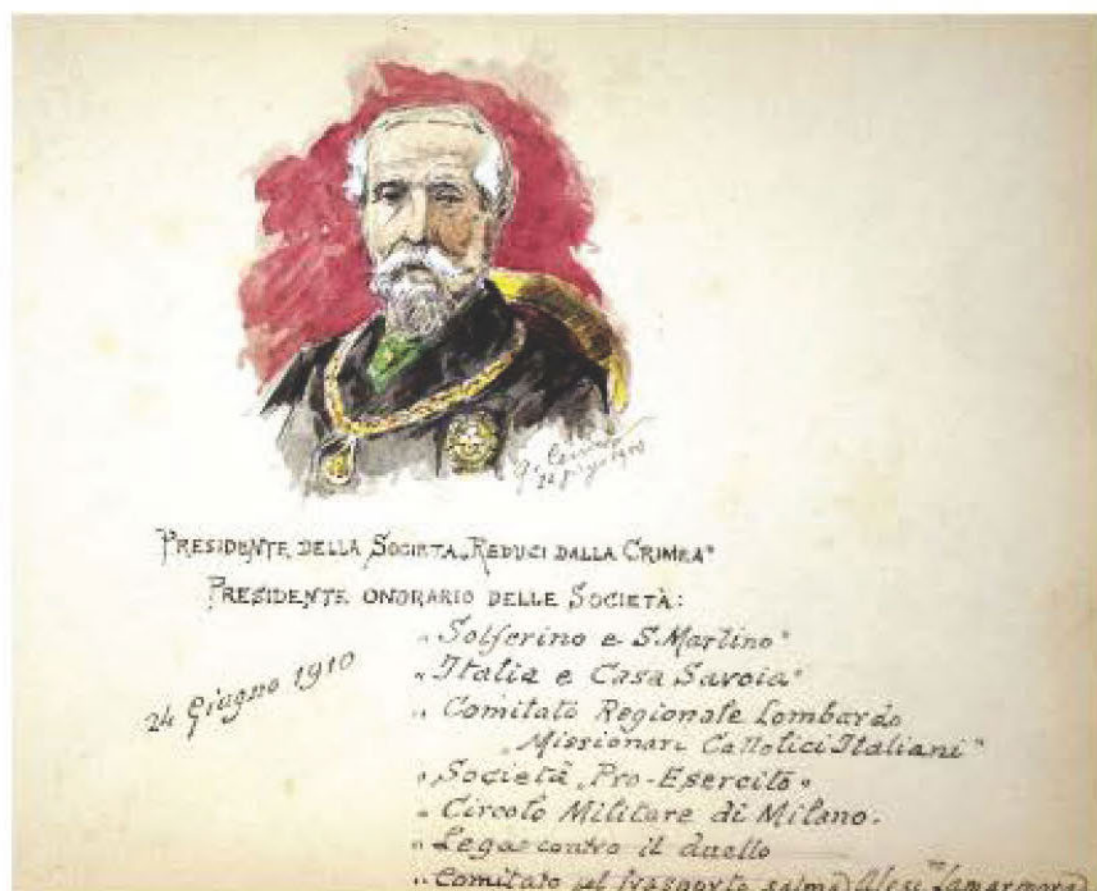 24 Giugno 1910
PRESIDENTE DELLA SOCIETÀ „REDUCI DALLA CRIMEA"
PRESIDENTE ONORARIO DELLE SOCIETÀ:
„ Solferino e S. Martino "
„ Italia e Casa Savoia "
„ Comitato Regionale Lombardo
„ Missionari Cattolici Italiani "
„ Società „Pro-Esercito „
„ Circolo Militare di Milano.
„ Lega contro il duello
„ Comitato pel trasporto salma Aless.ro Lamarmora
24 Giugno 1910